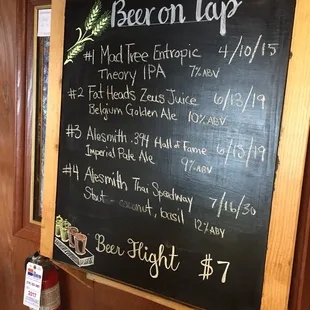 Beer on Tap
#1 Mad Tree Entropic 4/10/15
Theory IPA 7% ABV
#2 Fat Heads Zeus Juice 6/13/19
Belgium Golden Ale 10% ABV
#3 Alesmith .394 Hall of Fame 6/13/19
Imperial Pale Ale 9% ABV
#4 Alesmith Thai Speedway 7/16/30
Stout coconut, basil 12% ABV
Beer Flight $7
2017